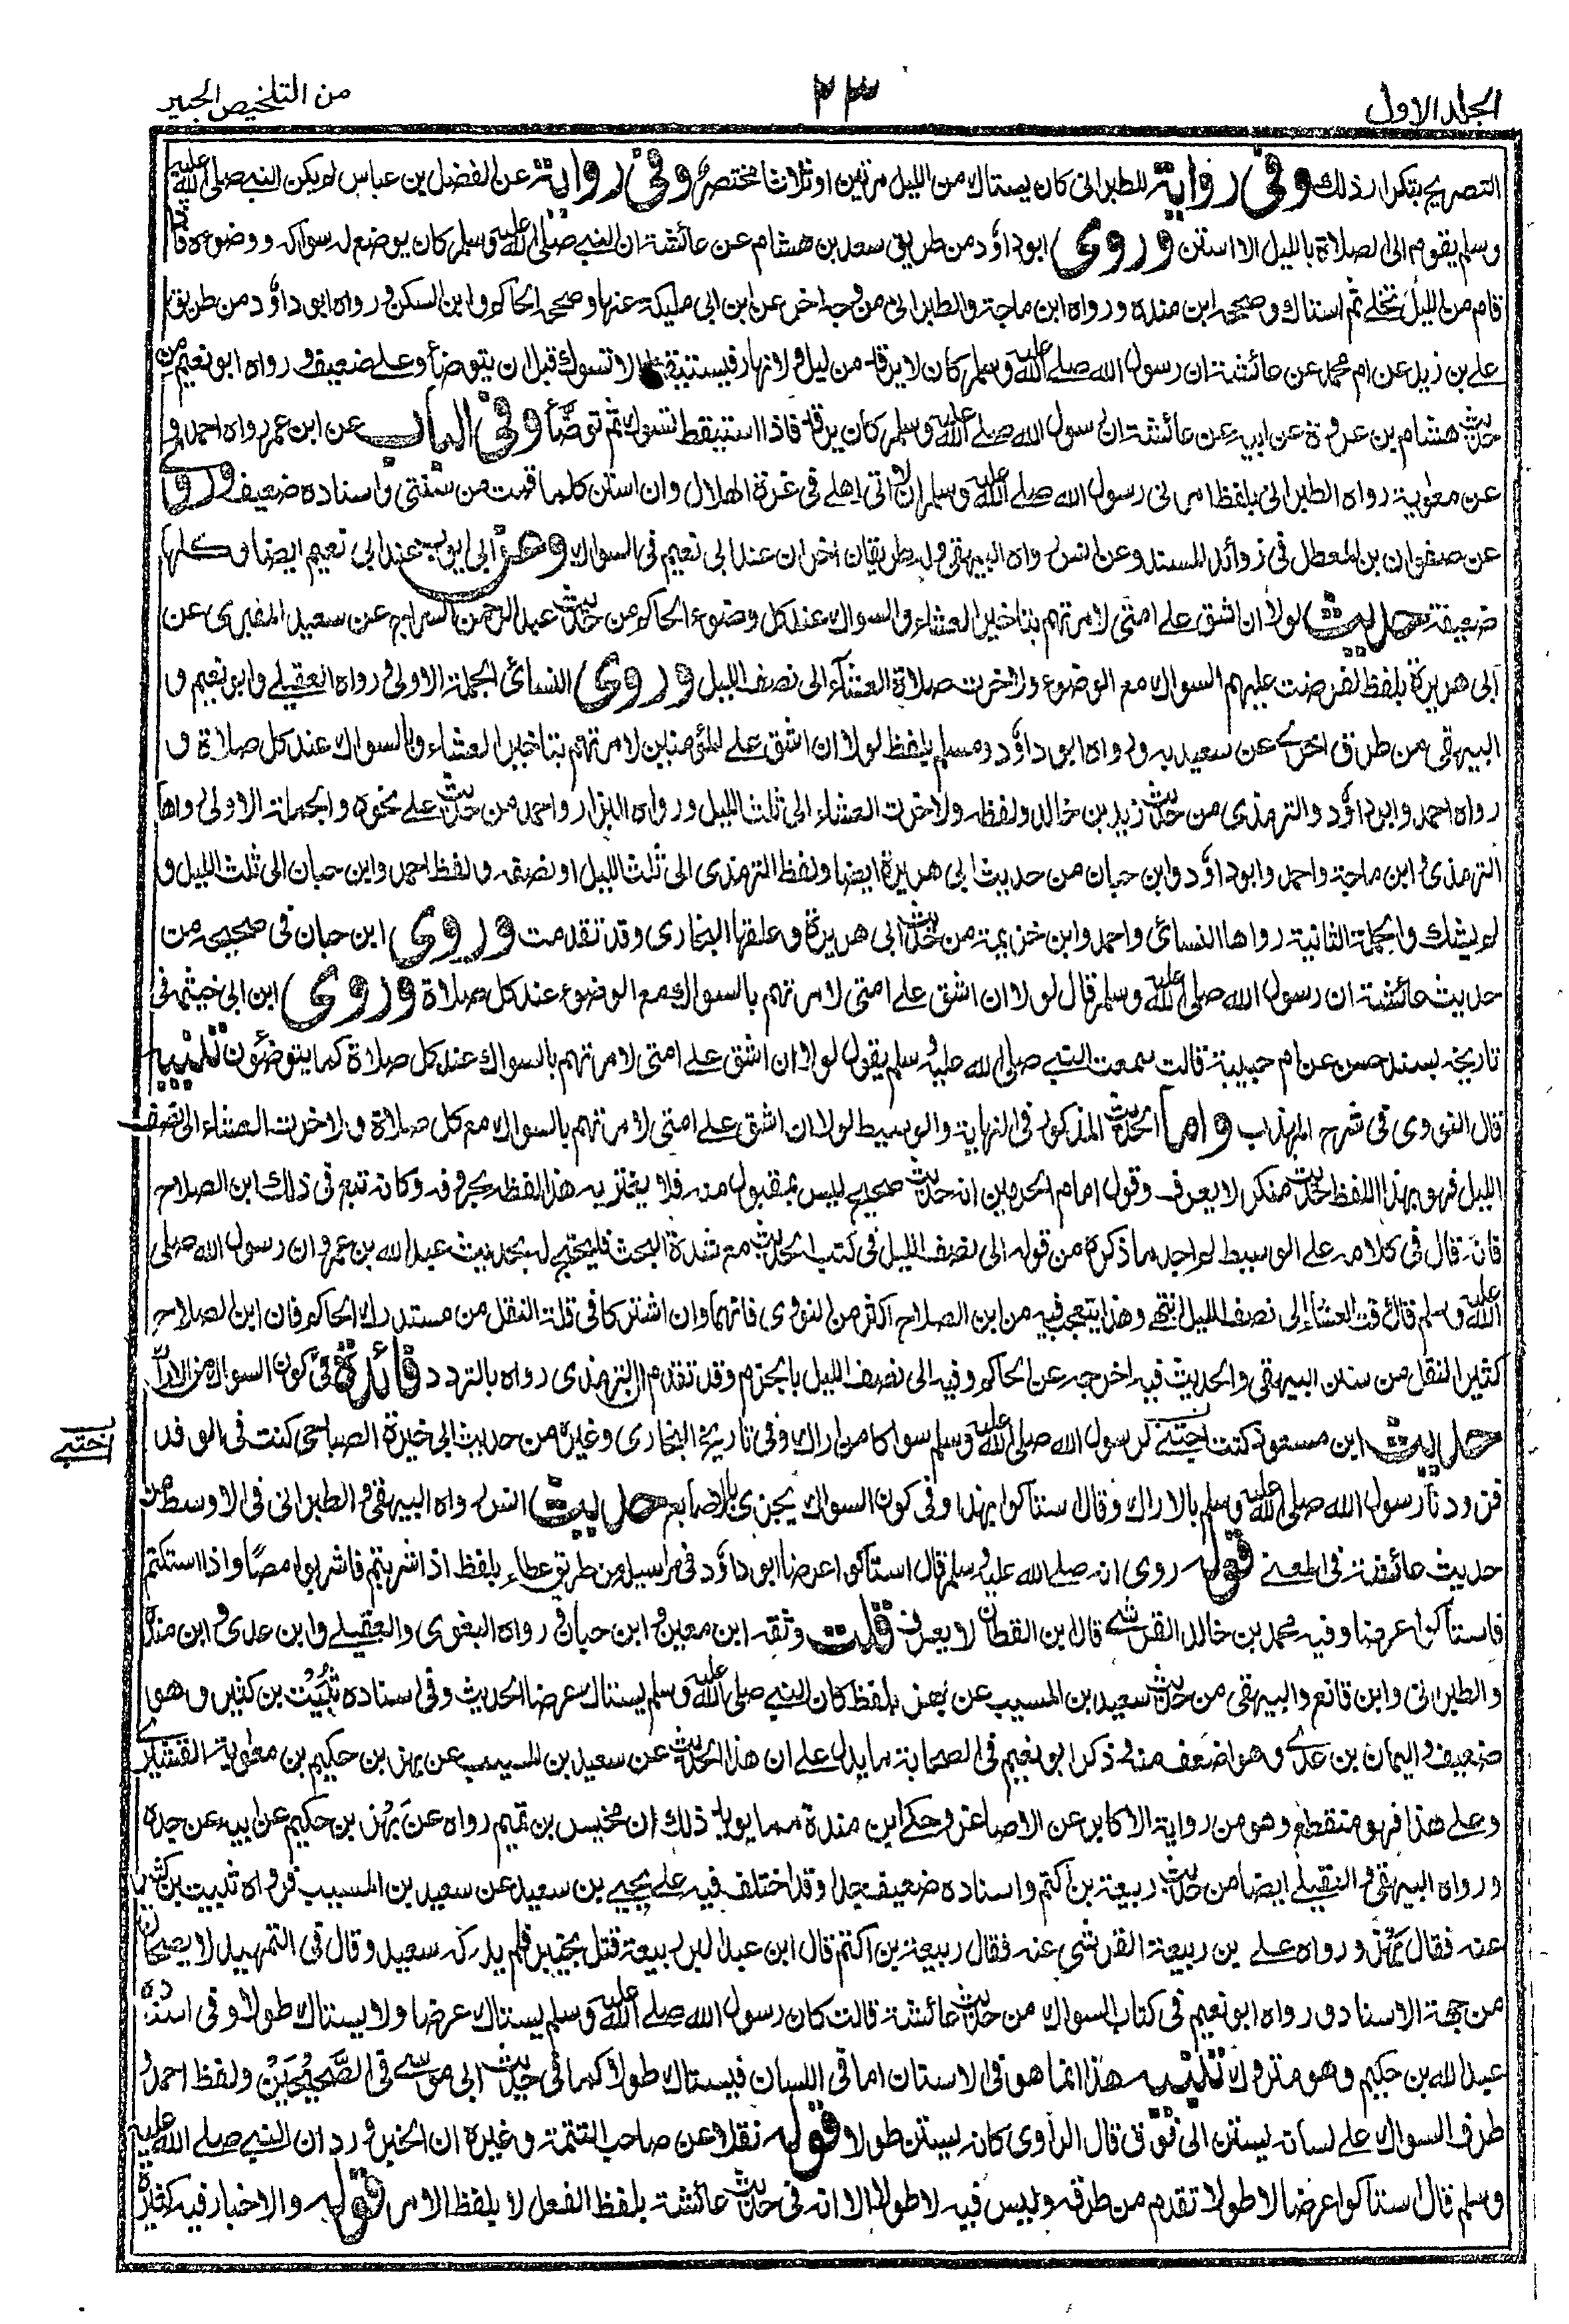 الجلد الاول
٢٣
من التلخيص الحبير
التصريح بتكرار ذلك وفي رواية للطبراني كان يستاك من الليل مرتين او ثلاثا مختصر وفي رواية عن الفضل بن عباس لم يكن النبي صلى الله عليه
وسلم يقوم الى الصلاة بالليل الا استن وروى ابو داؤد من طريق سعد بن هشام عن عائشة ان النبي صلى الله عليه وسلم كان يوضع له سواكه ووضوءه فاذا
قام من الليل تخلى ثم استاك وصححه ابن منده ورواه ابن ماجة والطبراني من وجه اخر عن ابن ابي مليكة عنها وصححه الحاكم وابن السكن ورواه ابو داؤد من طريق
علي بن زيد عن ام محمد عن عائشة ان رسول الله صلى الله عليه وسلم كان لا يرقد من ليل ولا نهار فيستيقظ الا تسوك قبل ان يتوضأ وعلي ضعيف ورواه ابو نعيم من
حديث هشام بن عروة عن ابيه عن عائشة ان رسول الله صلى الله عليه وسلم كان يرقد فاذا استيقظ تسوك ثم توضأ وفي الباب عن ابن عمر رواه احمد و
عن معوية رواه الطبراني بلفظ امرني رسول الله صلى الله عليه وسلم ان لا اتي اهلي في غرة الهلال وان استن كلما قمت من سنتي واسناده ضعيف وروى
عن صفوان بن المعطل في زوائد المسند وعن انس رواه البيهقي وله طريقان اخران عند ابي نعيم في السواك وعن ابي ايوب عند ابي نعيم ايضا وكلها
ضعيفة حديث لولا ان اشق على امتي لامرتهم بتاخير العشاء والسواك عند كل وضوء الحاكم من حديث عبد الرحمن السراج عن سعيد المقبري عن
ابي هريرة بلفظ لفرضت عليهم السواك مع الوضوء ولاخرت صلاة العشاء الى نصف الليل وروى النسائي الجملة الاولى ورواه العقيلي وابو نعيم و
البيهقي من طرق اخرى عن سعيد به ورواه ابو داؤد ومسلم بلفظ لولا ان اشق على المؤمنين لامرتهم بتاخير العشاء وبالسواك عند كل صلاة و
رواه احمد وابو داؤد والترمذي من حديث زيد بن خالد ولفظه ولاخرت العشاء الى ثلث الليل ورواه البزار واحمد من حديث علي نحوه والجملة الاولى رواها
الترمذي وابن ماجة واحمد وابو داؤد وابن حبان من حديث ابي هريرة ايضا ولفظ الترمذي الى ثلث الليل او نصفه ولفظ احمد وابن حبان الى ثلث الليل و
لم يشك والجملة الثانية رواها النسائي واحمد وابن خزيمة من حديث ابي هريرة وعلقها البخاري وقد تقدمت وروى ابن حبان في صحيحه من
حديث عائشة ان رسول الله صلى الله عليه وسلم قال لولا ان اشق على امتي لامرتهم بالسواك مع الوضوء عند كل صلاة وروى ابن ابي خيثمة في
تاريخه بسند حسن عن ام حبيبة قالت سمعت النبي صلى الله عليه وسلم يقول لولا ان اشق على امتي لامرتهم بالسواك عند كل صلاة كما يتوضئون تنبيه
قال النووي في شرح المهذب واما الحديث المذكور في النهاية والوسيط لولا ان اشق على امتي لامرتهم بالسواك مع كل صلاة ولاخرت العشاء الى نصف
الليل فهو بهذا اللفظ حديث منكر لا يعرف وقول امام الحرمين انه حديث صحيح ليس بمقبول منه فلا يغتر به هذا لفظه بحروفه وكانه تبع في ذلك ابن الصلاح
فانه قال في كلامه على الوسيط لم اجد ما ذكره من قوله الى نصف الليل في كتب الحديث مع شدة البحث فليحتج له بحديث عبد الله بن عمرو ان رسول الله صلى
الله عليه وسلم قال وقت العشاء الى نصف الليل انتهى وهذا يتعجب فيه من ابن الصلاح اكثر من النووي فانهما وان اشتركا في قلة النقل من مستدرك الحاكم فان ابن الصلاح
كثير النقل من سنن البيهقي والحديث فيه اخرجه عن الحاكم وفيه الى نصف الليل بالجزم وقد تقدم ان الترمذي رواه بالتردد فائدة في كون السواك من الاراك
حديث ابن مسعود كنت اجتني لرسول الله صلى الله عليه وسلم سواكا من اراك وفي تاريخ البخاري وغيره من حديث ابي خيرة الصباحي كنت في الوفد
فزودنا رسول الله صلى الله عليه وسلم بالاراك وقال استاكوا بهذا وفي كون السواك يجزي بالاصابع حديث انس رواه البيهقي والطبراني في الاوسط من
حديث عائشة في المعنى قوله روى انه صلى الله عليه وسلم قال استاكوا عرضا ابو داؤد في مراسيله من طريق عطاء بلفظ اذا شربتم فاشربوا مصًا واذا استكتم
فاستاكوا عرضا وفيه محمد بن خالد القرشي قال ابن القطان لا يعرف قلت وثقه ابن معين وابن حبان ورواه البغوي والعقيلي وابن عدي وابن منده
والطبراني وابن قانع والبيهقي من حديث سعيد بن المسيب عن بهز بلفظ كان النبي صلى الله عليه وسلم يستاك عرضا الحديث وفي اسناده ثبيت بن كثير وهو
ضعيف واليمان بن عدي وهو اضعف منه وذكر ابو نعيم في الصحابة ما يدل على ان هذا الحديث عن سعيد بن المسيب عن بهز بن حكيم بن معوية القشيري
وعلى هذا فهو منقطع وهو من رواية الاكابر عن الاصاغر وحكى ابن مندة مما يؤيد ذلك ان مخيس بن تميم رواه عن بهز بن حكيم عن ابيه عن جده
ورواه البيهقي والعقيلي ايضا من حديث ربيعة بن اكتم واسناده ضعيف جدا وقد اختلف فيه على يحيى بن سعيد عن سعيد بن المسيب فرواه ثبيت بن كثير
عنه فقال بهز ورواه علي بن ربيعة القرشي عنه فقال ربيعة بن اكتم قال ابن عبد البر ربيعة قتل بخيبر فلم يدركه سعيد وقال في التمهيد لا يصحان
من جهة الاسناد ورواه ابو نعيم في كتاب السواك من حديث عائشة قالت كان رسول الله صلى الله عليه وسلم يستاك عرضا ولا يستاك طولا وفي اسناده
عبد الله بن حكيم وهو متروك تنبيه هذا انما هو في الاسنان اما في اللسان فيستاك طولا كما في حديث ابي موسى في الصحيحين ولفظ احمد و
طرف السواك على لسانه يستن الى فوق قال الراوي كانه يستن طولا قوله نقلا عن صاحب التتمة وغيره ان الخبر ورد ان النبي صلى الله عليه
وسلم قال استاكوا عرضا لا طولا تقدم من طرقه وليس فيه لا طولا الا انه في حديث عائشة بلفظ الفعل لا بلفظ الامر قوله والاخبار فيه كثيرة